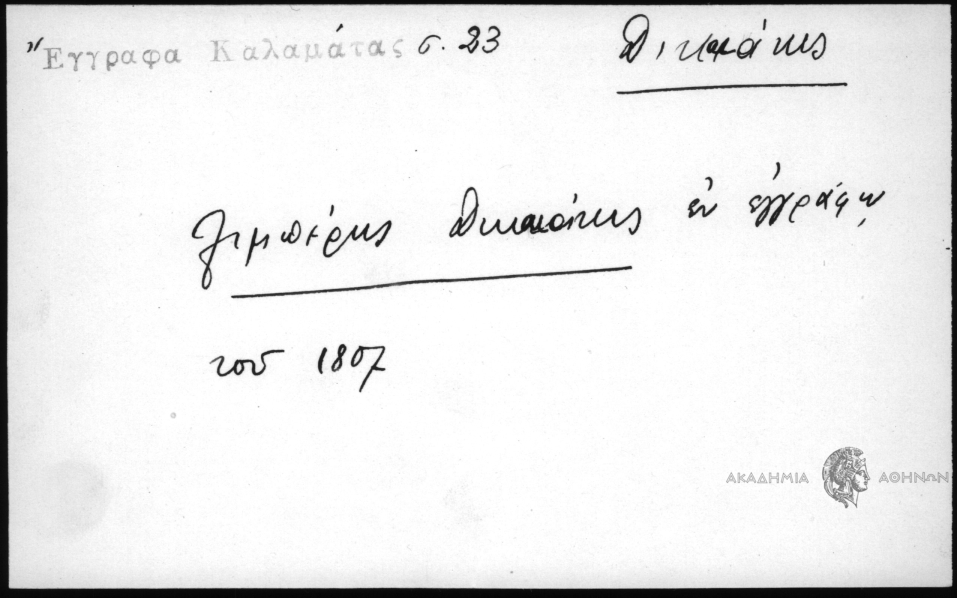 Ἔγγραφα Καλαμάτας σ. 23
Δικαιάκης
Λιμπέρης Δικαιάκης ἐν ἐγγράφῳ
τοῦ 1807
ΑΚΑΔΗΜΙΑ ΑΘΗΝΩΝ